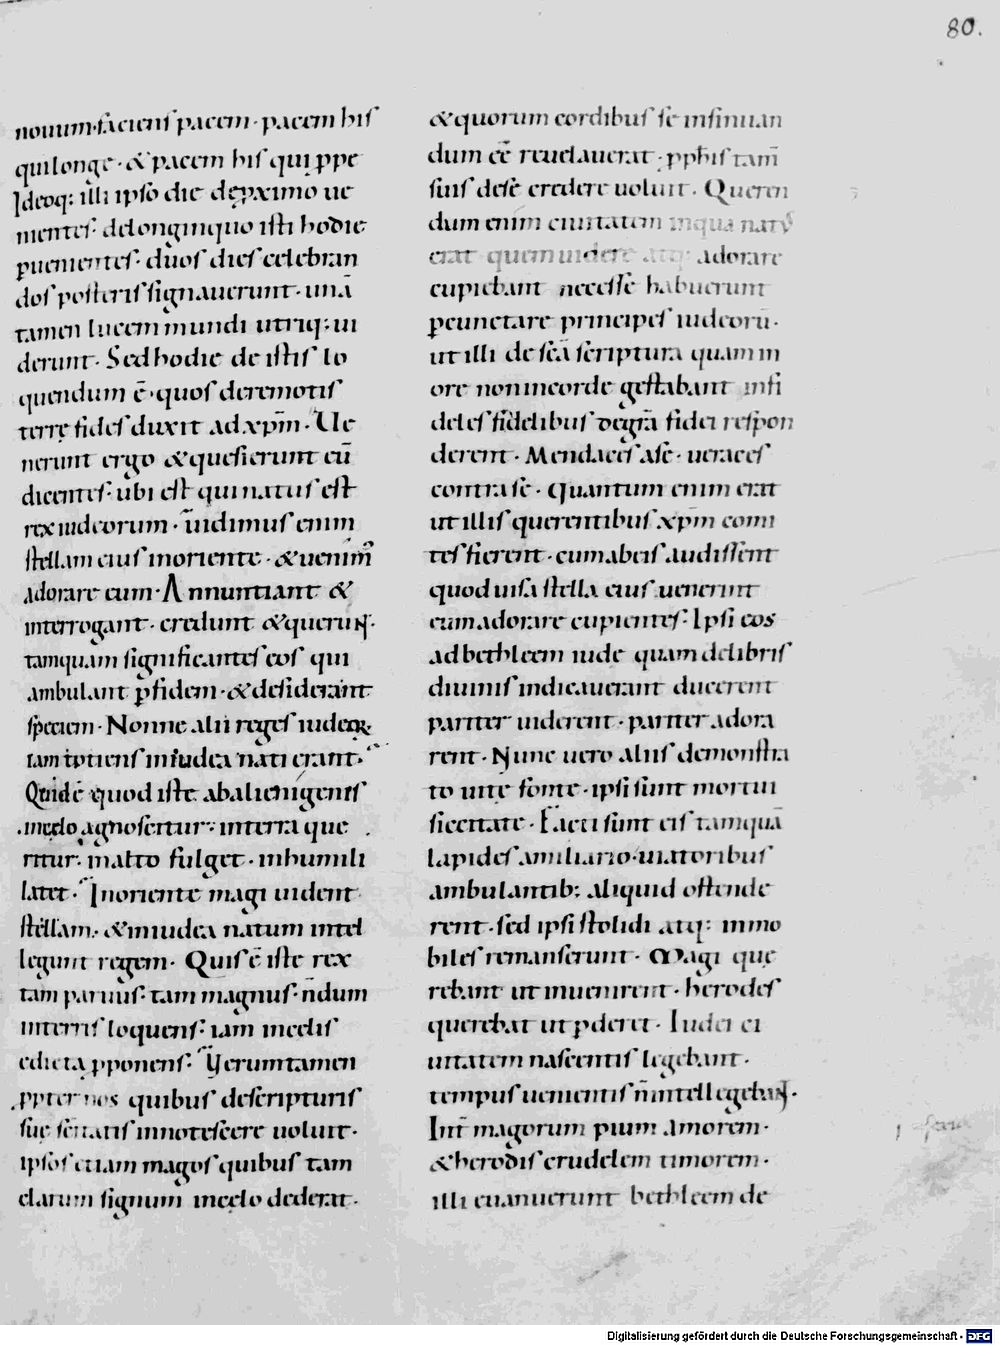 80.
nouum·faciens pacem·pacem his
qui longe·& pacem his qui ꝓpe
Ideoq: illi ipso die de ꝓximo ue
nientes· delonginquo isti hodie
ꝑuenientes· duos dies celebran
dos posteris signauerunt·unā
tamen lucem mundi utriq; ui
derunt· Sed hodie de istis lo
quendum ē·quos deremotis
terrę fides duxit ad xp̄m· Ue
nerunt ergo & quesierunt eū
dicentes· ubi est qui natus est
rex iudeorum· uidimus enim
stellam eius in oriente·& uenimꝰ
adorare eum· Annuntiant &
interrogant· credunt & querunt·
tamquam significantes eos qui
ambulant ꝑ fidem·& desiderant
speciem· Nonne alii reges iudeoꝝ
tam totiens in iudea nati erant·
Quid ē quod iste ab alienigenis
in cęlo agnoscitur· in terra que
ritur· in alto fulget· in humili
latet· In oriente magi uident
stellam·& in iudea natum intel
legunt regem· Quis ē iste rex
tam paruus· tam magnus· n̄dum
in terris loquens· iam in cęlis
edicta ꝓponens· Verumtamen
ꝓpter nos quibus de scripturis
suę sc̄itatis innotescere uoluit·
ipsos etiam magos quibus tam
clarum signum in cęlo dederat·
& quorum cordibus se insinuan
dum ēē reuelauerat· ꝓph̄is tam̄
suis de se credere uoluit· Queren
dum enim ciuitatem in qua natꝰ
erat quem uidere atq: adorare
cupiebant necesse habuerunt
ꝑcunctare principes iudeorū·
ut illi de sc̄a scriptura quam in
ore non in corde gestabant infi
deles fidelibus de gr̄a fidei respon
derent· Mendaces a se· ueraces
contra se· Quantum enim erat
ut illis querentibus xp̄m comi
tes fierent· cum ab eis audissent
quod uisa stella eius uenerint
eum adorare cupientes· Ipsi eos
ad bethleem iude quam de libris
diuinis indicauerant ducerent
pariter uiderent· pariter adora
rent· Nunc uero aliis demonstra
to uite fonte· ipsi sunt mortui
siccitate· Facti sunt eis tamquā
lapides a miliario· uiatoribus
ambulantib; aliquid ostende
rent· sed ipsi stolidi atq: inmo
biles remanserunt· Magi que
rebant ut inuenirent· herodes
querebat ut ꝑderet· Iudei ci
uitatem nascentis legebant·
tempus uenientis n̄ intellegebant·
Int̄ magorum pium amorem·
& herodis crudelem timorem·
illi euanuerunt bethleem de
Digitalisierung gefördert durch die Deutsche Forschungsgemeinschaft - DFG